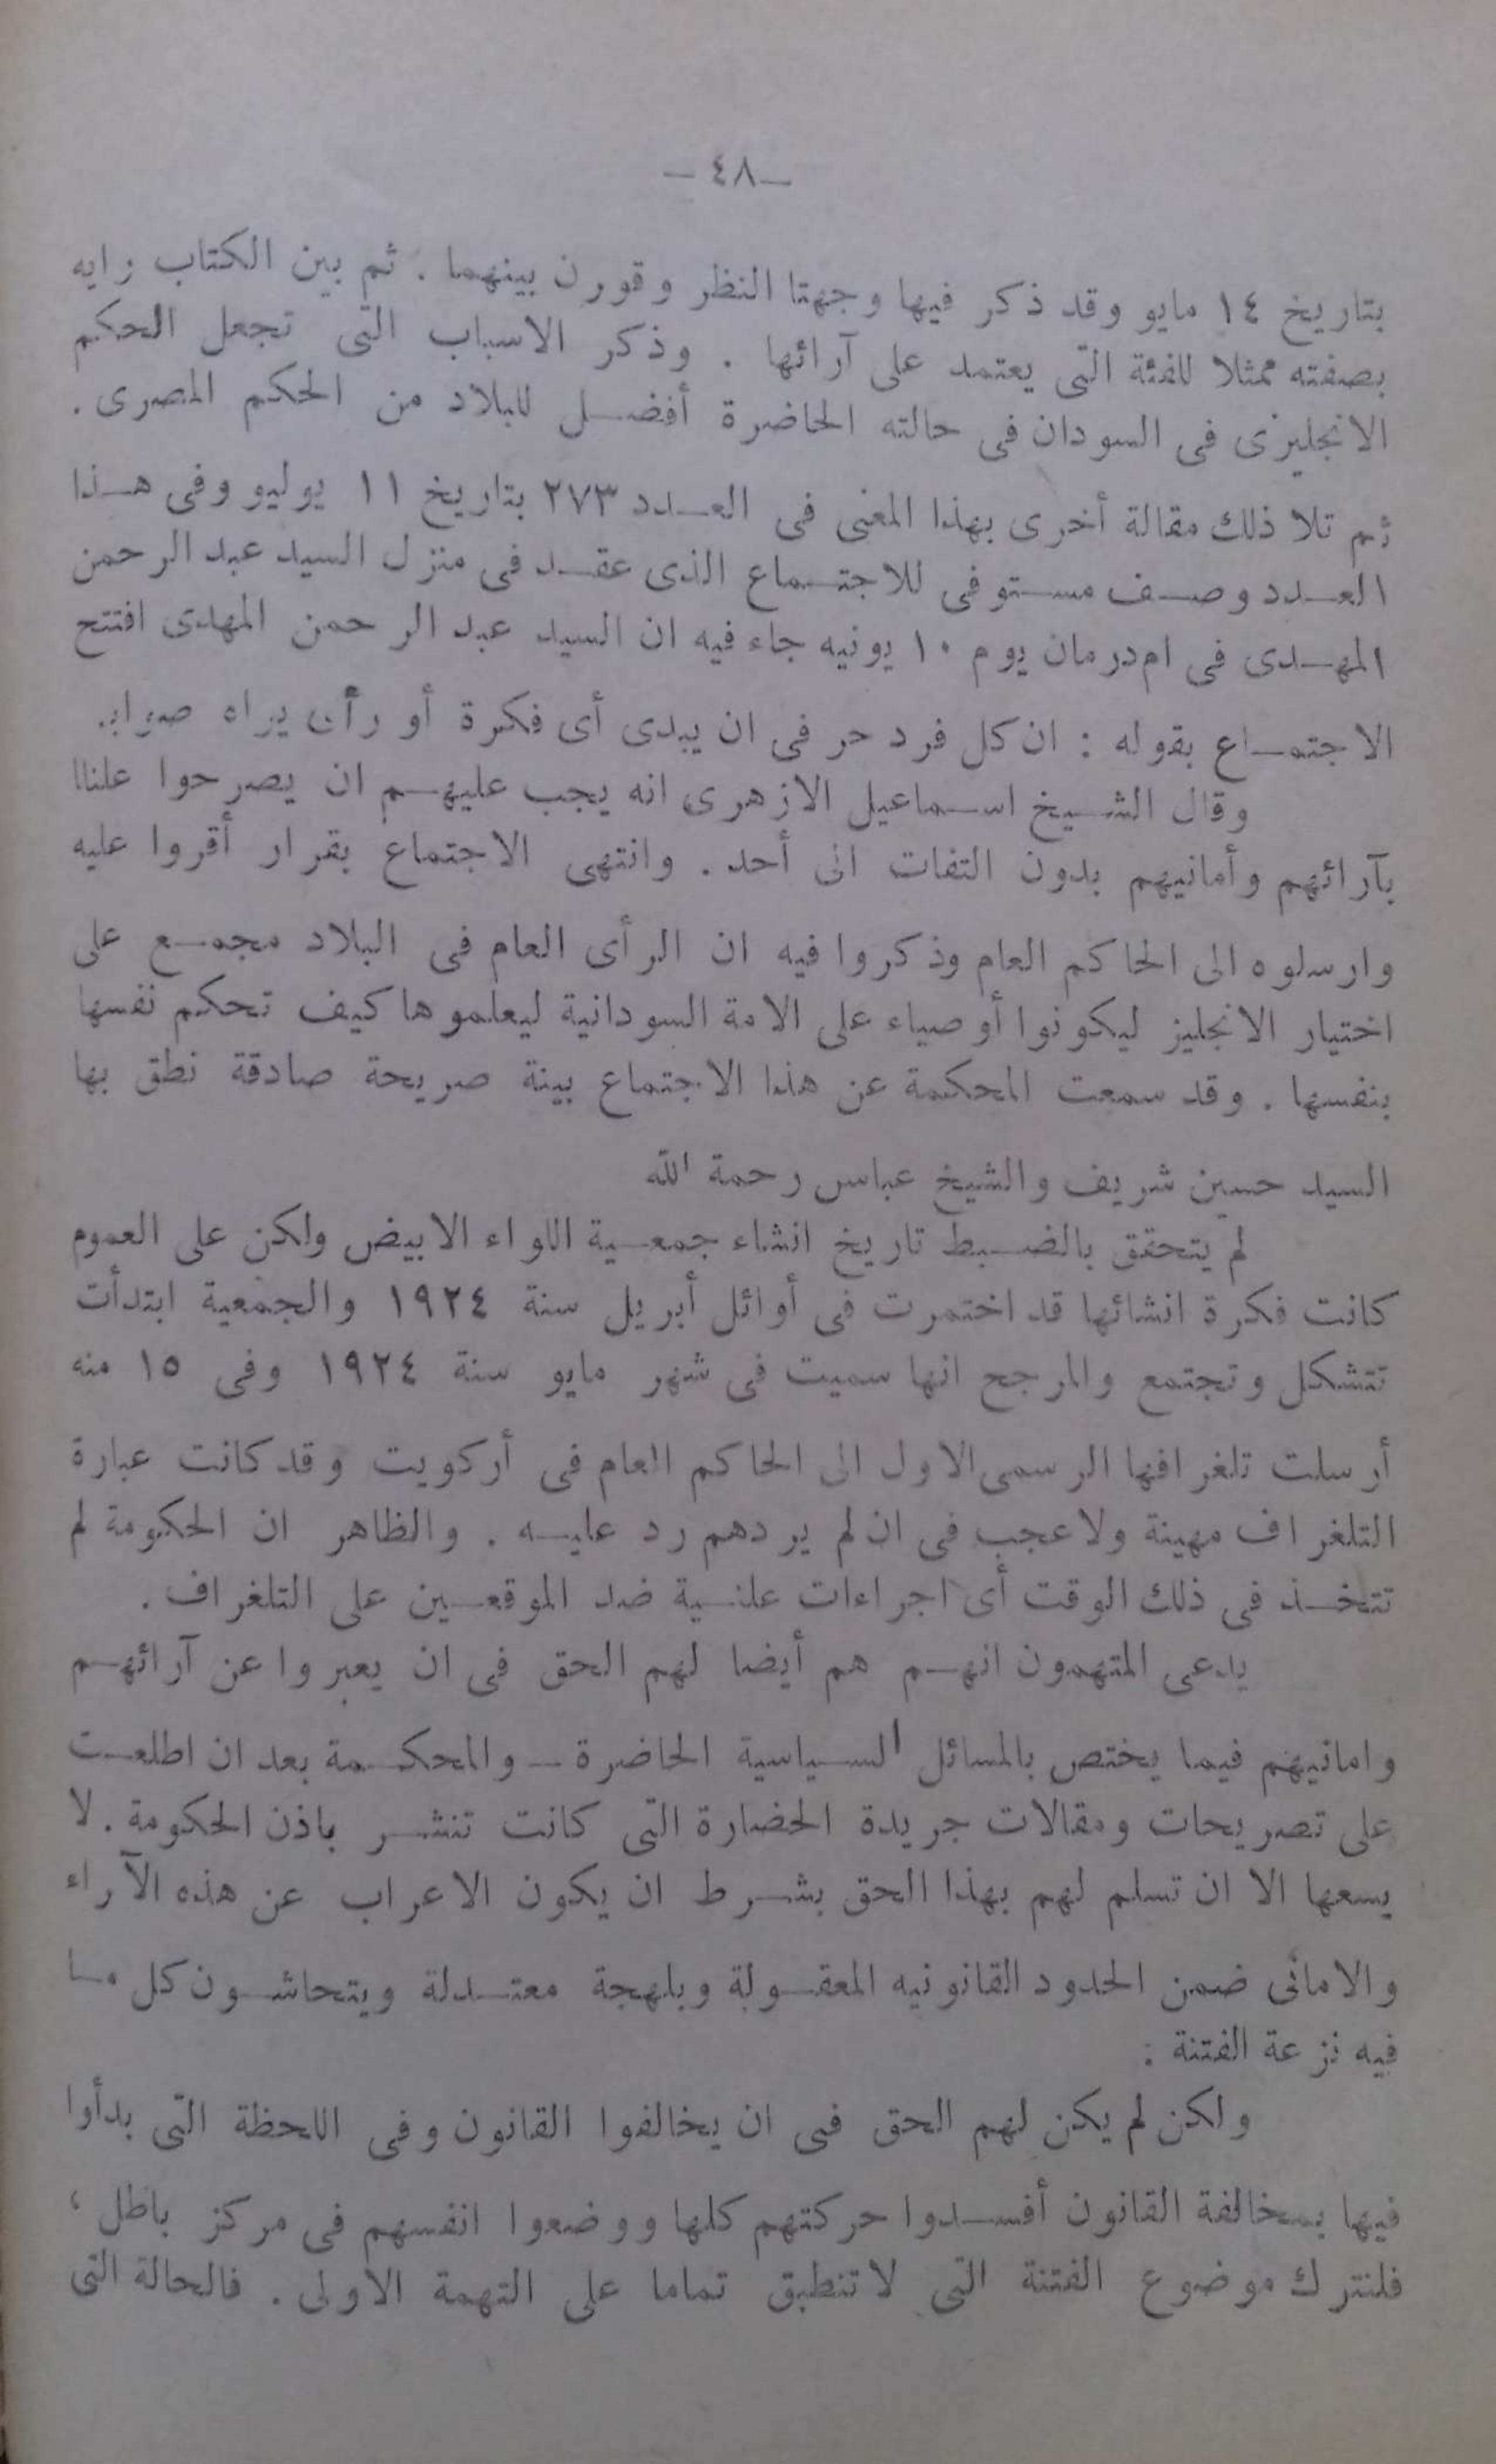 — ٤٨ —
بتاريخ ١٤ مايو وقد ذكر فيها وجهتا النظر وقورن بينهما . ثم بين الكتاب رايه
بصفته ممثلا للفئة التى يعتمد على آرائها . وذكر الاسباب التى تجعل الحكم
الانجليزى فى السودان فى حالته الحاضرة أفضل للبلاد من الحكم المصرى .
ثم تلا ذلك مقالة أخرى بهذا المعنى فى العدد ٢٧٣ بتاريخ ١١ يوليو وفى هذا
العدد وصف مستوفى للاجتماع الذى عقد فى منزل السيد عبد الرحمن
المهدى فى امدرمان يوم ١٠ يونيه جاء فيه ان السيد عبد الرحمن المهدى افتتح
الاجتماع بقوله : ان كل فرد حر فى ان يبدى أى فكرة أو رأى يراه صوابا.
وقال الشيخ اسماعيل الازهرى انه يجب عليهم ان يصرحوا علنا
بآرائهم وأمانيهم بدون التفات الى أحد . وانتهى الاجتماع بقرار أقروا عليه
وارسلوه الى الحاكم العام وذكروا فيه ان الرأى العام فى البلاد مجمع على
اختيار الانجليز ليكونوا أوصياء على الامة السودانية ليعلموها كيف تحكم نفسها
بنفسها . وقد سمعت المحكمة عن هذا الاجتماع بينة صريحة صادقة نطق بها
السيد حسين شريف والشيخ عباس رحمة الله
لم يتحقق بالضبط تاريخ انشاء جمعية اللواء الابيض ولكن على العموم
كانت فكرة انشائها قد اختمرت فى أوائل أبريل سنة ١٩٢٤ والجمعية ابتدأت
تتشكل وتجتمع والمرجح انها سميت فى شهر مايو سنة ١٩٢٤ وفى ١٥ منه
أرسلت تلغرافها الرسمى الاول الى الحاكم العام فى أركويت وقد كانت عبارة
التلغراف مهينة ولا عجب فى ان لم يردهم رد عليه . والظاهر ان الحكومة لم
تتخذ فى ذلك الوقت أى اجراءات علنية ضد الموقعين على التلغراف .
يدعى المتهمون انهم هم أيضا لهم الحق فى ان يعبروا عن آرائهم
وامانيهم فيما يختص بالمسائل السياسية الحاضرة — والمحكمة بعد ان اطلعت
على تصريحات ومقالات جريدة الحضارة التى كانت تنشر باذن الحكومة . لا
يسعها الا ان تسلم لهم بهذا الحق بشرط ان يكون الاعراب عن هذه الآراء
والامانى ضمن الحدود القانونيه المعقولة وبلهجة معتدلة ويتحاشون كل ما
فيه نزعة الفتنة :
ولكن لم يكن لهم الحق فى ان يخالفوا القانون وفى اللحظة التى بدأوا
فيها بمخالفة القانون أفسدوا حركتهم كلها ووضعوا انفسهم فى مركز باطل ،
فلنترك موضوع الفتنة التى لا تنطبق تماما على التهمة الاولى . فالحالة التى